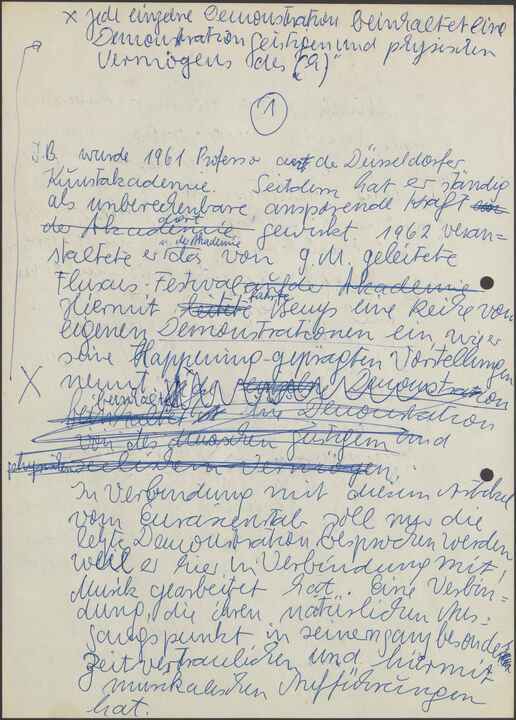 x jede einzelne Demonstration beinhaltet eine
Demonstration geistigen und physischen
Vermögens des
1
J.B. wurde 1961 Professor an de Düsseldorfer
Kunstakademie. Seitdem hat er ständig
als unberechenbare anspornende Kraft
der Akademie dort gewirkt 1962 veran=
i. der Akademie
staltete er das von g.M. geleitete
Fluxus-Festival auf de Akademie
Hiermit leitet führte Beuys eine Reihe von
eigenen Demonstrationen ein, wie er
seine Happening-geprägten Vorstellungen
X nennt. Demonstration
beinhaltet
beinhaltet die Demonstration
von des Menschen geistigem und
physischem Vermögen.
In Verbindung mit diesem Artikel
vom Eurasienstab soll nur die
letzte Demonstration besprochen werden
weil er hier in Verbindung mit
Musik gearbeitet hat. Eine Verbin=
dung, die ihren natürlichen Aus-
gangspunkt in seinen ganz besonderen
zeitvertraulichen und hiermit
musikalischen Aufführungen
hat.